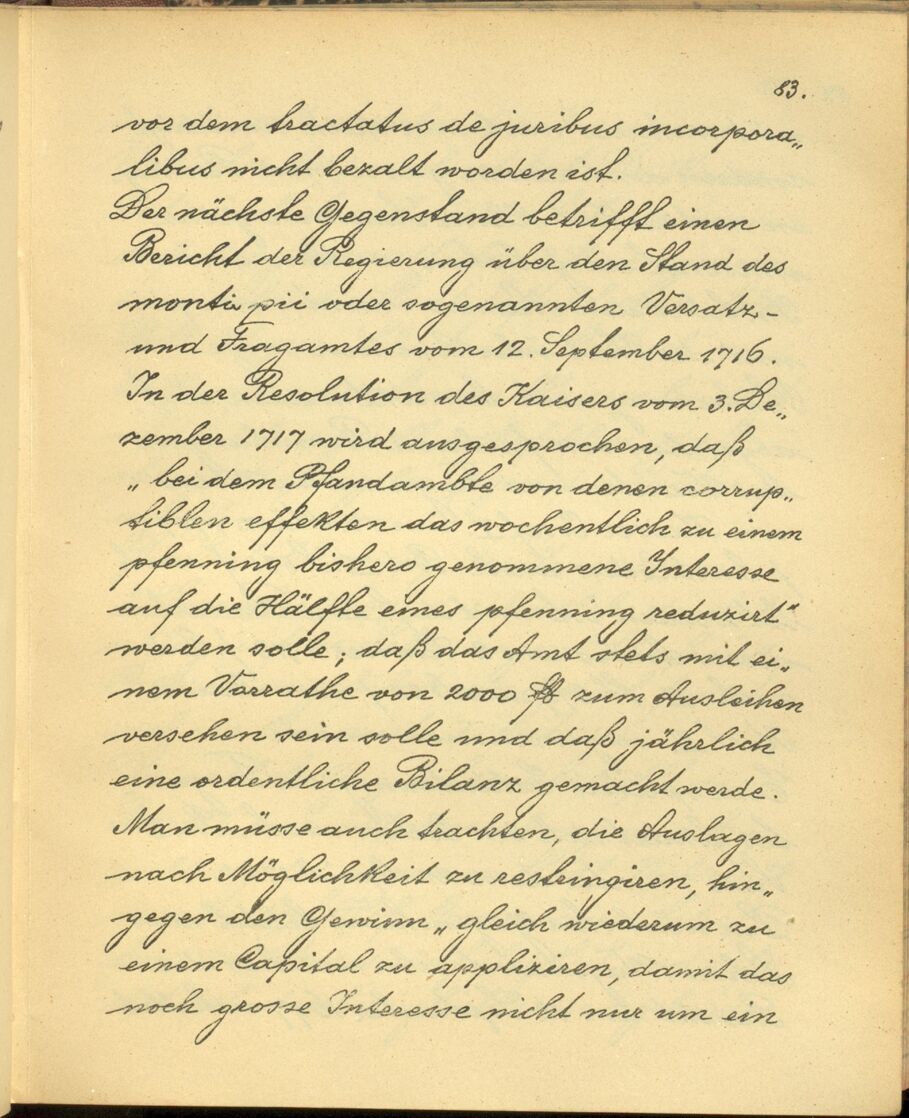 83.
vor dem tractatus de juribus incorpora„
libus nicht bezalt worden ist.
Der nächste Gegenstand betrifft einen
Bericht der Regierung über den Stand des
monti pii oder sogenannten Versatz-
und Fragamtes vom 12. September 1716.
In der Resolution des Kaisers vom 3. De„
zember 1717 wird ausgesprochen, daß
„bei dem Pfandambte von denen corrup„
tiblen effekten das wochentlich zu einem
pfenning bishero genommene Interesse
auf die Hälfte eines pfenning reduzirt“
werden solle; daß das Amt stets mit ei„
nem Vorrathe von 2000 fl zum Ausleihen
versehen sein solle und daß jährlich
eine ordentliche Bilanz gemacht werde.
Man müsse auch trachten, die Auslagen
nach Möglichkeit zu restringiren, hin„
gegen den Gewinn „gleich wiederum zu
einem Capital zu appliziren, damit das
noch grosse Interesse nicht nur um ein